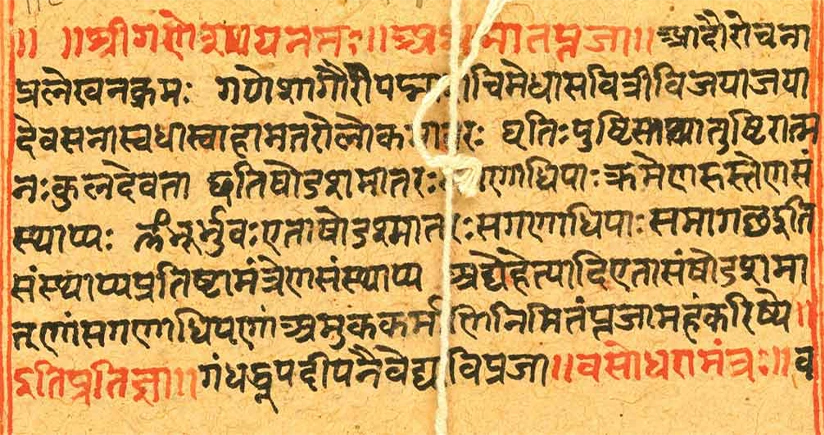 ॥ ॥श्रीगणेशायनमः॥ मातपूजा॥ आदौरोचना
प्रलेखनक्रमः गणेशागौरीपद्मा चिमेधासवित्रीविजयाजया
देवसेनास्वधास्वाहामातरोलोक रः धृतिःपुष्टि तुष्टिरात्म
नःकुलदेवता इतिषोडशमातरः णाधिपाःक्रमेणहस्तेणसं
स्थाप्यः र्भुवःएताषोडश्मातरःसगणाधिपाःसमागछइति
संस्थाप्यप्रतिष्टामंत्रेणसंस्थाप्य अद्येहेत्यादिएतासंषोडशमा
तृणांसगणाधिपणां अमुककर्म निमितंपूजामहंकरिष्ये॥
इतिप्रतिज्ञा॥ गंधद्धूपदीपनैवेद्य विपूजा॥ वसोधरामंत्रः॥ व